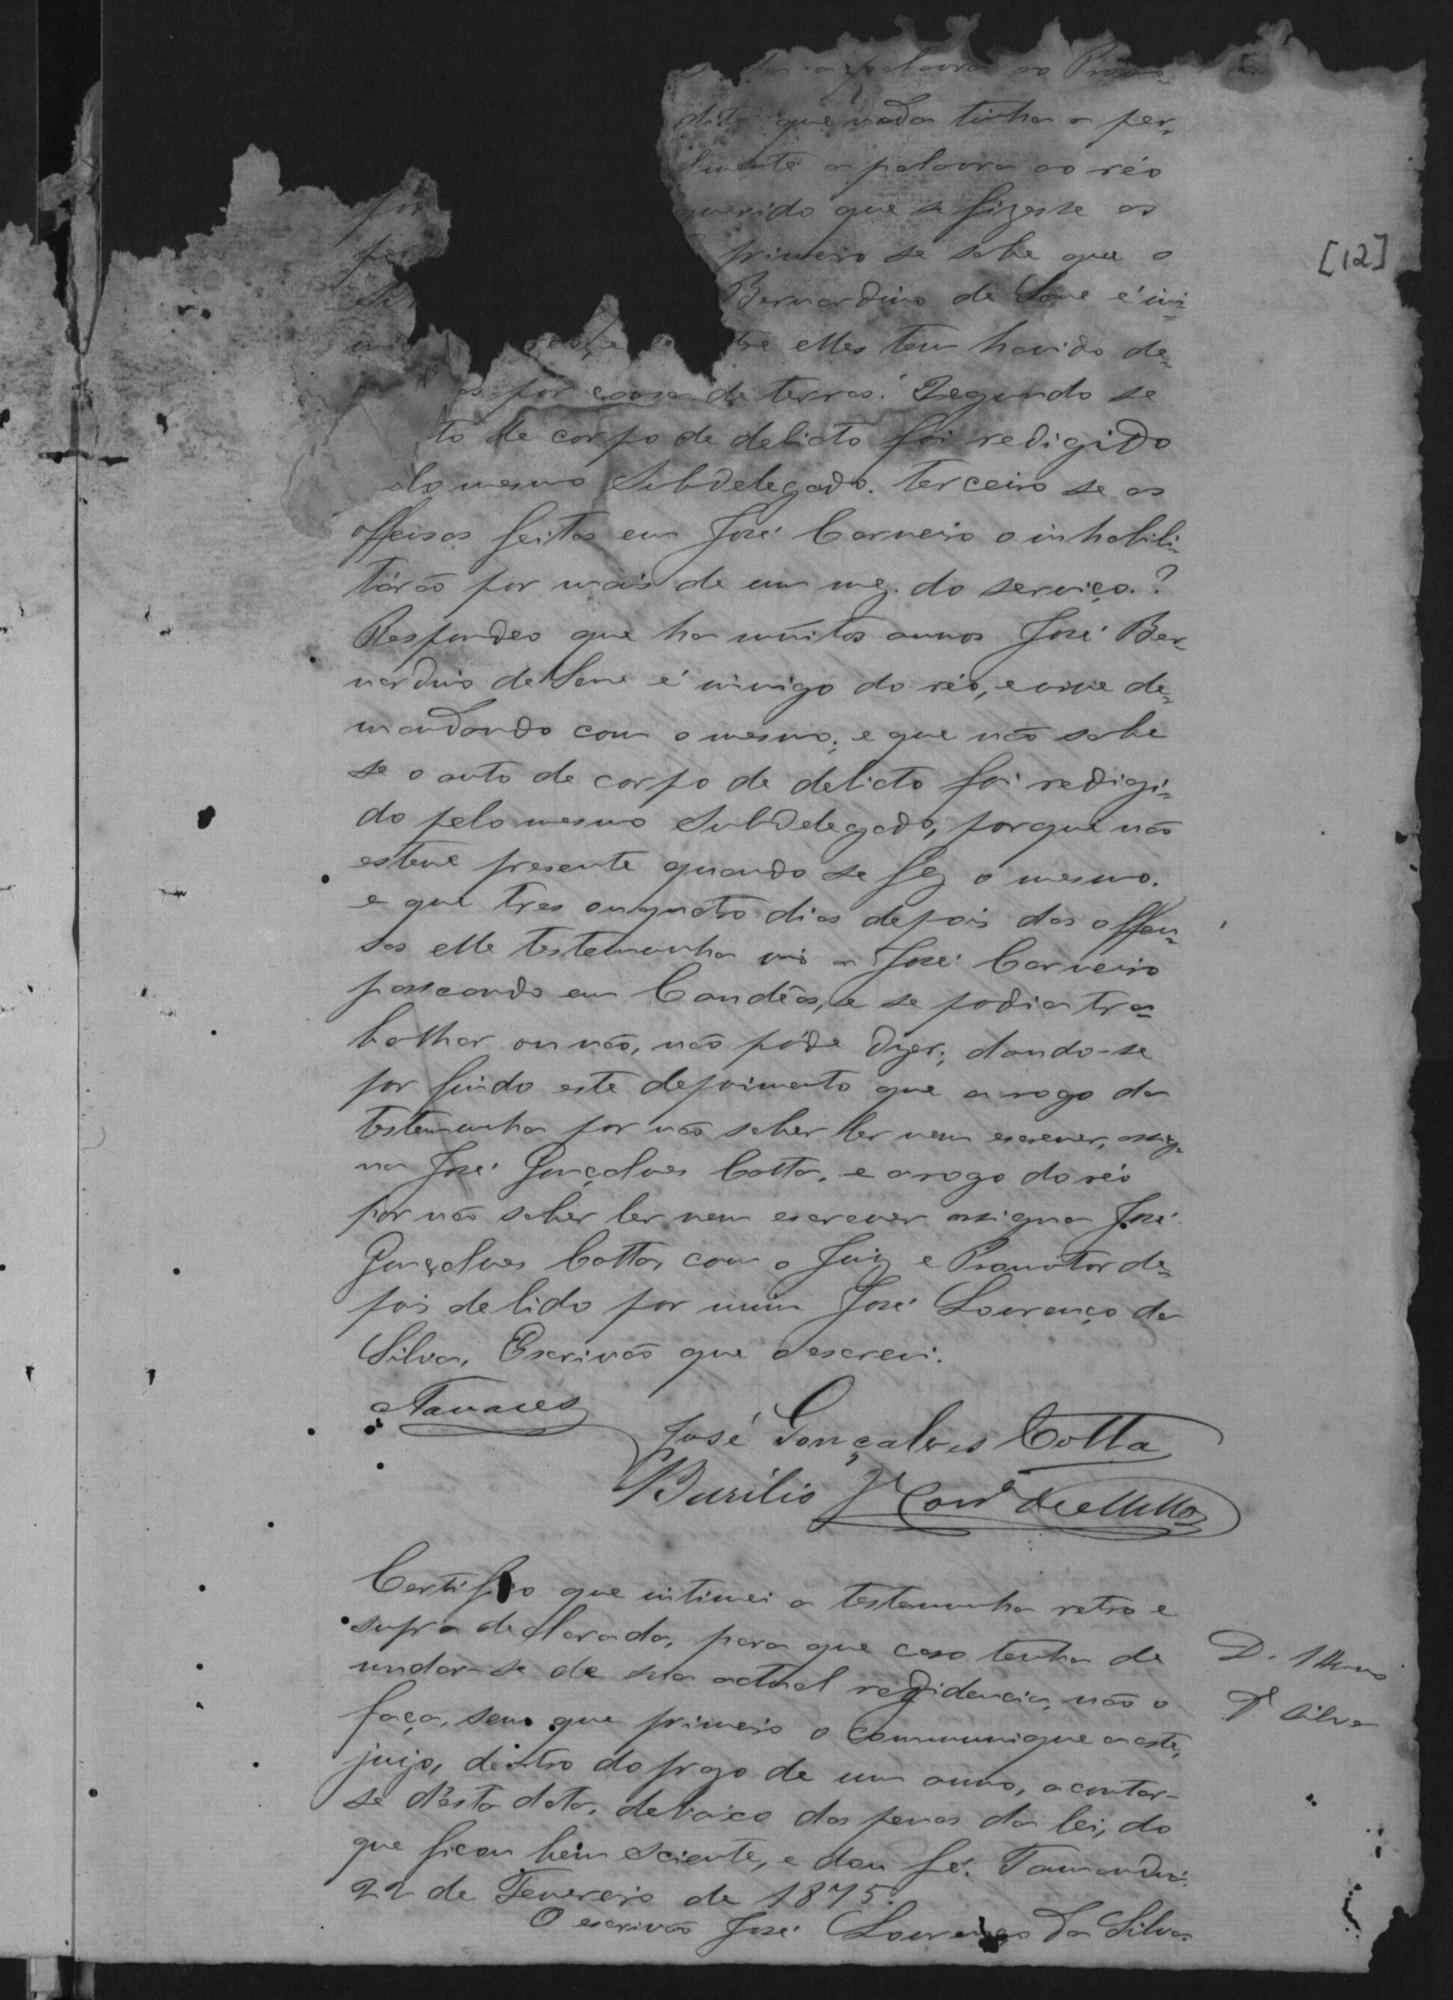 a palavra ao Promo-
dito que nada tinha a per-
a palavra ao réo
por querido que se fizesse as
per primeiro se sabe que o
Bernardino de Sene é ini-
elles tem havido de-
as por causa de terras. Segundo se
to de corpo de delicto foi redigido
lo mesmo Subdelegado. Terceiro se as
offensas feitas em José Carneiro o inhabili-
tárão por mais de um mez do serviço.?
Respondeo que ha muitos annos José Ber-
nardino de Sene é inimigo do réo, e vive de-
mandando com o mesmo; e que não sabe
se o auto de corpo de delicto foi redigi-
do pelo mesmo Subdelegado, porque não
esteve presente quando se fez o mesmo.
e que tres ou quatro dias depois das offen-
sas elle testemunha vio a José Carneiro
passeando em Candêas, e se podia tra-
balhar ou não, não póde dizer; dando-se
por findo este depoimento que a rogo da
testemunha por não saber ler nem escrever, assig-
na José Gonçalves Cotta, e a rogo do réo
por não saber ler nem escrever assigna José
Gonçalves Cotta, com o Juiz e Promotor de-
pois de lido por mim José Lourenço da
Silva, Escrivão que o escrevi.
Tavares
José Gonçalves Cotta
Bazilio
Certifico que intimei a testemunha retro e
supra declarada, para que caso tenha de
mudar-se de sua actual residencia, não o
faça, sem que primeiro o communique a este
juizo, dentro do prazo de um anno, a contar-
se d'esta data, debaixo das penas da lei, do
que ficou bem sciente, e dou fé. Tamanduá
22 de Fevereiro de 1875.
O escrivão José Lourenço da Silva
[12]
Silva